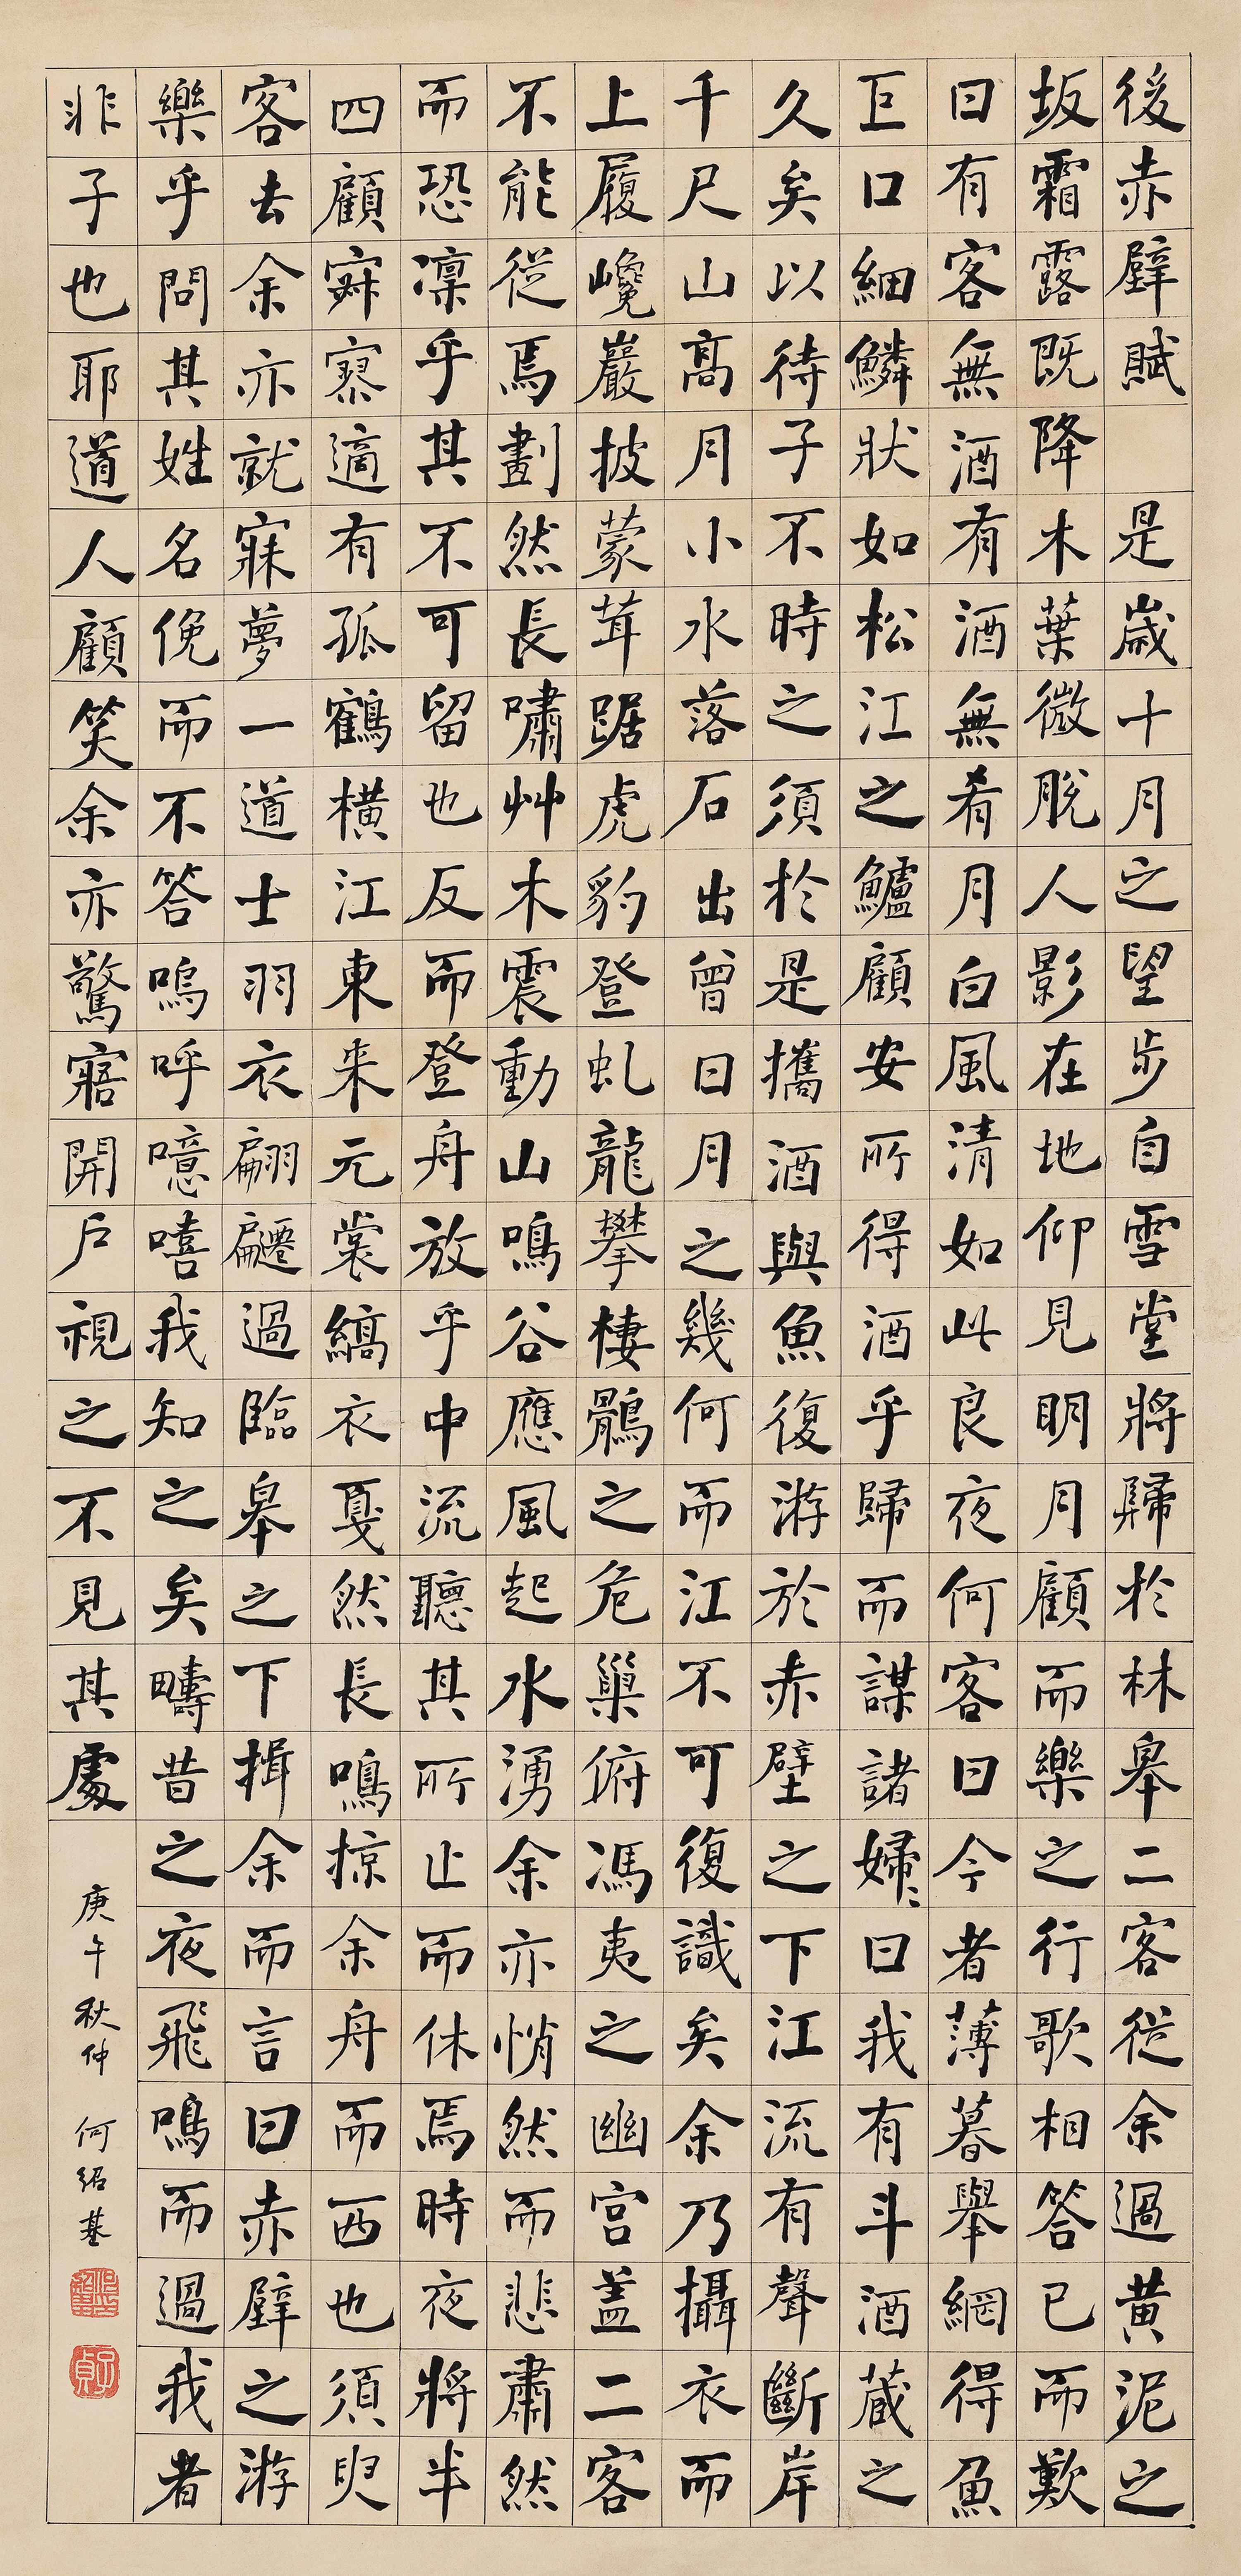 後赤壁賦 是歲十月之望步自雪堂將歸於林皋二客從余過黃泥之
坂霜露既降木葉微脫人影在地仰見明月顧而樂之行歌相答已而歎
曰有客無酒有酒無肴月白風清如此良夜何客曰今者薄暮舉網得魚
巨口細鱗狀如松江之鱸顧安所得酒乎歸而謀諸婦〻曰我有斗酒藏之
久矣以待子不時之須於是攜酒與魚復游於赤壁之下江流有聲斷岸
千尺山高月小水落石出曾日月之幾何而江不可復識矣余乃攝衣而
上履巉巖披蒙茸踞虎豹登虬龍攀棲鶻之危巢俯馮夷之幽宮蓋二客
不能從焉劃然長嘯艸木震動山鳴谷應風起水湧余亦悄然而悲肅然
而恐凜乎其不可留也反而登舟放乎中流聽其所止而休焉時夜將半
四顧寂寥適有孤鶴橫江東来元裳縞衣戛然長鳴掠余舟而西也須臾
客去余亦就寐夢一道士羽衣翩躚過臨皋之下揖余而言曰赤壁之游
樂乎問其姓名俛而不答嗚呼噫嘻我知之矣疇昔之夜飛鳴而過我者
非子也耶道人顧笑余亦驚寤開戶視之不見其處
庚午秋仲 何紹基
何紹基印
子貞